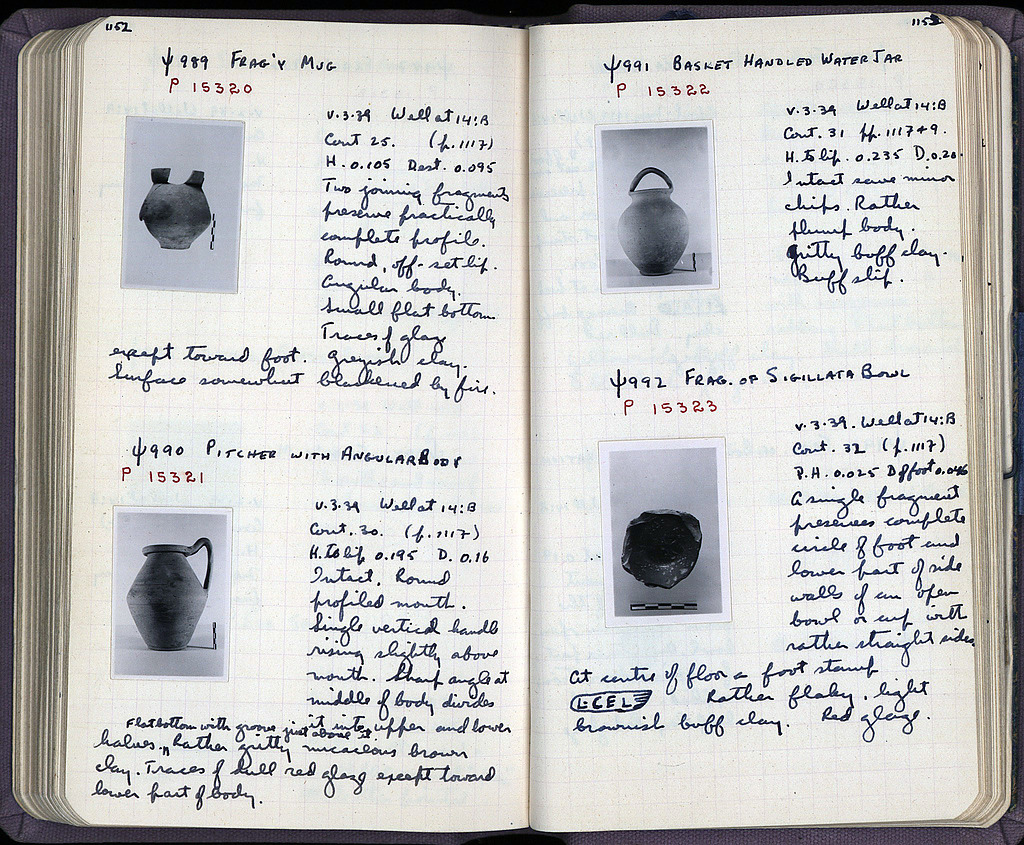 1152
ψ989 FRAG'Y MUG
P 15320
V.3.39 Well at 14:B
Cont 25. (p.1117)
H. 0.105 Rest. 0.095
Two joining fragments
preserve practically
complete profile.
Round, off-set lip.
Angular body.
Small flat bottom
Traces of glaze
except toward foot. Greyish clay.
Surface somewhat blackened by fire.
ψ990 PITCHER WITH ANGULAR BODY
P 15321
V.3.39 Well at 14:B
Cont. 30. (p.1117)
H. to lip 0.195 D. 0.16
Intact. Round
profiled mouth.
Single vertical handle
rising slightly above
mouth. Sharp angle at
middle of body divides
it into upper and lower
Flat bottom with groove just above it.
halves. Rather gritty micaceous brown
clay. Traces of dull red glaze except toward
lower part of body.
1153
ψ991 BASKET HANDLED WATER JAR
P 15322
V.3.39 Well at 14:B
Cont. 31 pp. 1117+9.
H. to lip. 0.235 D. 0.20.
Intact save minor
chips. Rather
plump body.
Gritty buff clay.
Buff slip.
ψ992 FRAG. OF SIGILLATA BOWL
P 15323
V.3.39. Well at 14:B
Cont. 32 (p.1117)
P.H. 0.025 D of foot 0.046
A single fragment
preserves complete
circle of foot and
lower part of side
walls of an open
bowl or cup with
rather straight sides.
At centre of floor a foot stamp
L·CEL Rather flaky, light
brownish buff clay. Red glaze.